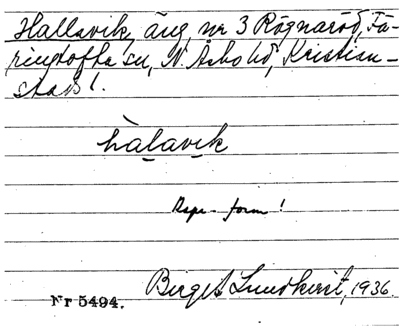 Hallavik, äng, nr 3 Rögnaröd, Fä-
ringtofta sn, N. Åsbo hd, Kristian-
stads l.
hàlavik
form!
Birgit Lundkvist, 1936.
Nr 5494.